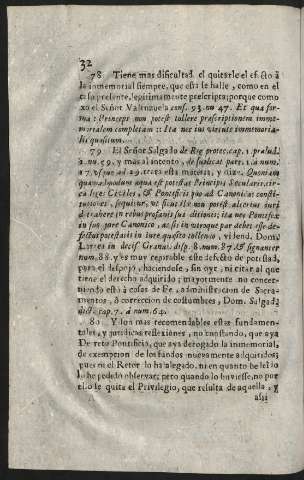 32
78 Tiene mas dificultad el quitarle el efecto à
la inmemorial siempre, que esta se halle, como en el
caso presente, legitimamente prescripta; porque como
dixo el Señor Valenzuela cons. 93. nu. 47. Et qua for-
ma: Princeps non potest tollere præscriptionem imme-
morialem completam: Ita nec ius virtute immemoria-
lis quæsitum.
79 El Señor Salgado de Reg. protec. cap. 1. prælud.
2. nu. 59. y mas al intento, de suplicat. part. 1. à num.
17. usque ad 29. trata esta materia, y diz. Quoniam
quemadmodum aqua est potestas Principis Secularis cir-
ca leges Civiles, & Pontificis quo ad Canonicas consti-
tutiones, sequitur, ut sicut ille non potest alterius iura
detrahere in rebus profanis suæ ditionis; ita nec Pontifex
in suo iure Canonico, ac sic in utroque par debet esse de-
fectus potestatis in iure quæsito tollendo, vidend. Dom.
Larrea in decis. Granat. disp. 8. num. 37. & signanter
num. 88. y es muy reparable este defecto de potestad,
para el despojo, haciendose, sin oyr, ni citar al que
tiene el derecho adquirido; mayormente no concer-
niendo esto à cosas de Fè, administracion de Sacra-
mentos, ò correccion de costumbres, Dom. Salgad.
dict. cap. 7. à num. 64.
80 Y son mas recomendables estas fundamen-
tales, y juridicas reflexiones, no constando, que aya
Decreto Pontificio, que aya derogado la inmemorial,
de exempcion de los fundos nuevamente adquiridos;
pues ni el Retor lo ha alegado, ni en quanto he leìdo
lo he podido observar; pero quando lo huviesse, no por
esso le quita el Privilegio, que resulta de aquella, y
assi